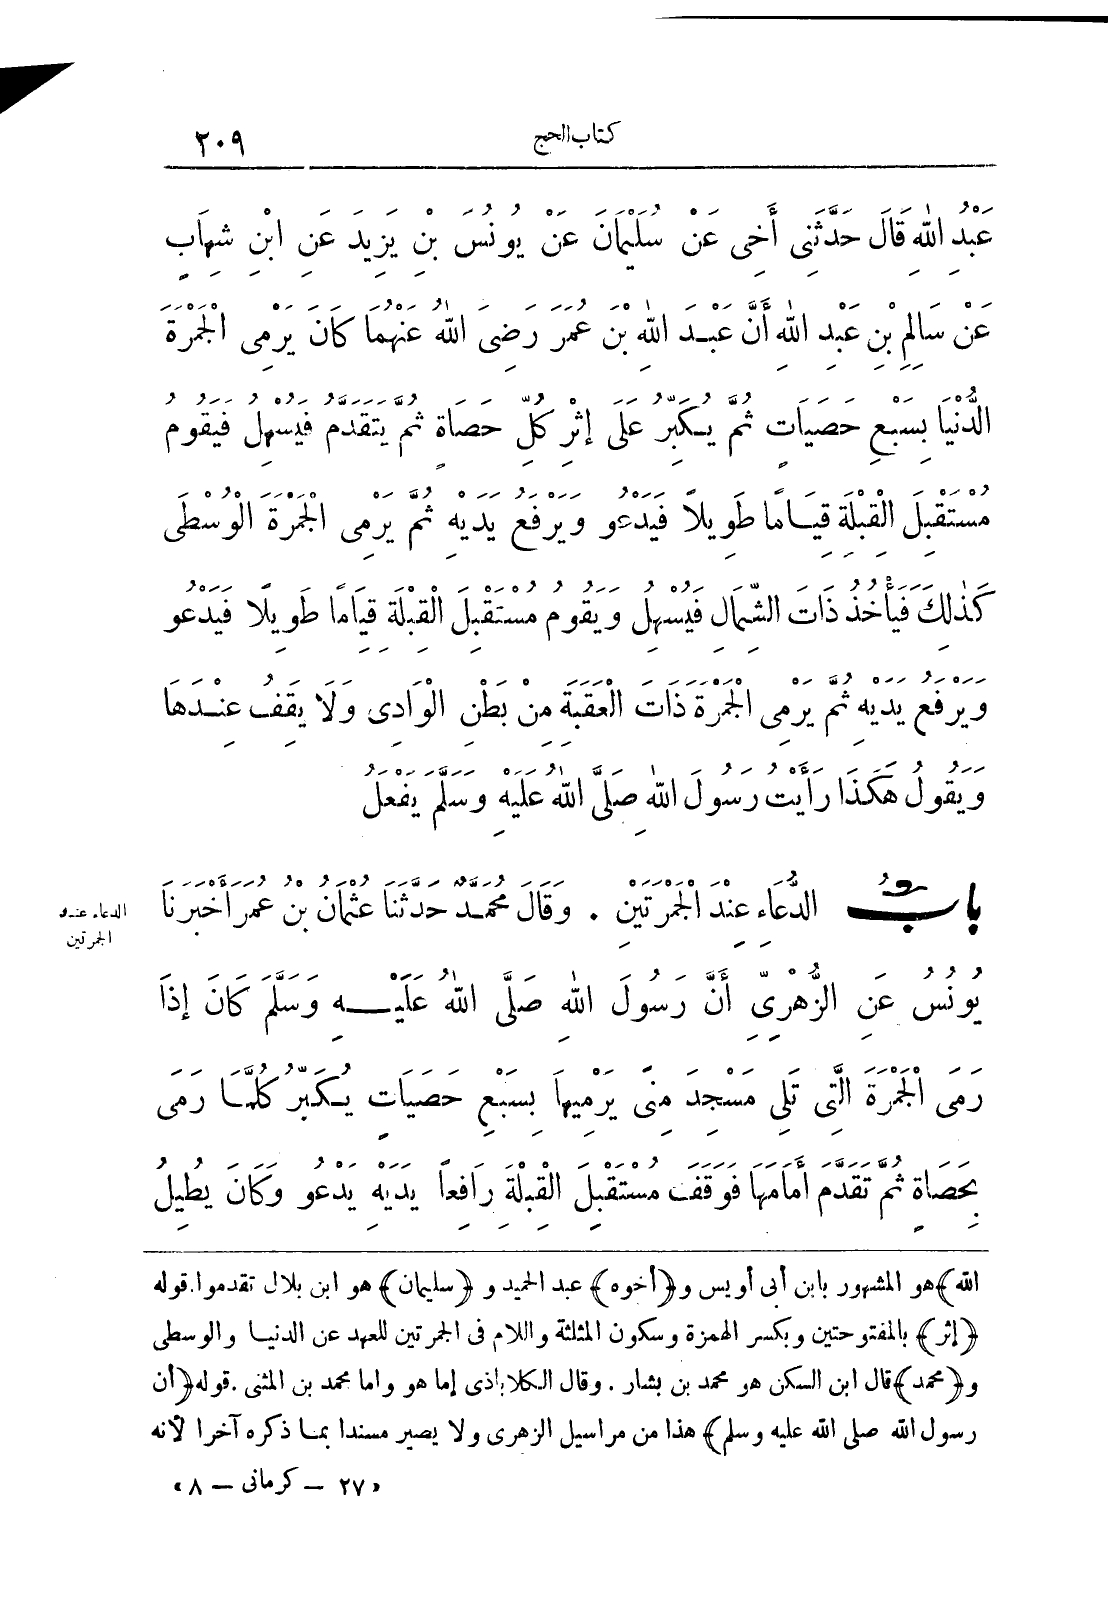 كتاب الحج ٢٠٩
عَبْدُ اللهِ قَالَ حَدَّثَنِى أَخِى عَنْ سُلَيْمَانَ عَنْ يُونُسَ بْنِ يَزِيدَ عَنِ ابْنِ شِهَابٍ
عَنْ سَالِمِ بْنِ عَبْدِ اللهِ أَنَّ عَبْدَ اللهِ بْنَ عُمَرَ رَضِىَ اللهُ عَنْهُمَا كَانَ يَرْمِى الْجَمْرَةَ
الدُّنْيَا بِسَبْعِ حَصَيَاتٍ ثُمَّ يُكَبِّرُ عَلَى إِثْرِ كُلِّ حَصَاةٍ ثُمَّ يَتَقَدَّمُ فَيُسْهِلُ فَيَقُومُ
مُسْتَقْبِلَ الْقِبْلَةِ قِيَامًا طَوِيلًا فَيَدْعُو وَيَرْفَعُ يَدَيْهِ ثُمَّ يَرْمِى الْجَمْرَةَ الْوُسْطَى
كَذٰلِكَ فَيَأْخُذُ ذَاتَ الشِّمَالِ فَيُسْهِلُ وَيَقُومُ مُسْتَقْبِلَ الْقِبْلَةِ قِيَامًا طَوِيلًا فَيَدْعُو
وَيَرْفَعُ يَدَيْهِ ثُمَّ يَرْمِى الْجَمْرَةَ ذَاتَ الْعَقَبَةِ مِنْ بَطْنِ الْوَادِى وَلَا يَقِفُ عِنْدَهَا
وَيَقُولُ هَكَذَا رَأَيْتُ رَسُولَ اللهِ صَلَّى اللهُ عَلَيْهِ وَسَلَّمَ يَفْعَلُ
بابُ الدُّعَاءِ عِنْدَ الْجَمْرَتَيْنِ . وَقَالَ مُحَمَّدٌ حَدَّثَنَا عُثْمَانُ بْنُ عُمَرَ أَخْبَرَنَا
الدعاء عند
الجمرتين
يُونُسُ عَنِ الزُّهْرِىِّ أَنَّ رَسُولَ اللهِ صَلَّى اللهُ عَلَيْهِ وَسَلَّمَ كَانَ إِذَا
رَمَى الْجَمْرَةَ الَّتِى تَلِى مَسْجِدَ مِنًى يَرْمِيهَا بِسَبْعِ حَصَيَاتٍ يُكَبِّرُ كُلَّمَا رَمَى
بِحَصَاةٍ ثُمَّ تَقَدَّمَ أَمَامَهَا فَوَقَفَ مُسْتَقْبِلَ الْقِبْلَةِ رَافِعًا يَدَيْهِ يَدْعُو وَكَانَ يُطِيلُ
الله﴾ هو المشهور بابن أبى أويس و﴿أخوه﴾ عبد الحميد و ﴿سليمان﴾ هو ابن بلال تقدموا. قوله
﴿إثر﴾ بالمفتوحتين وبكسر الهمزة وسكون المثلثة واللام فى الجمرتين للعهد عن الدنيا والوسطى
و﴿محمد﴾ قال ابن السكن هو محمد بن بشار . وقال الكلاباذى إما هو واما محمد بن المثنى . قوله ﴿أن
رسول الله صلى الله عليه وسلم﴾ هذا من مراسيل الزهرى ولا يصير مسندا بما ذكره آخرا لأنه
«٢٧ — كرمانى — ٨»